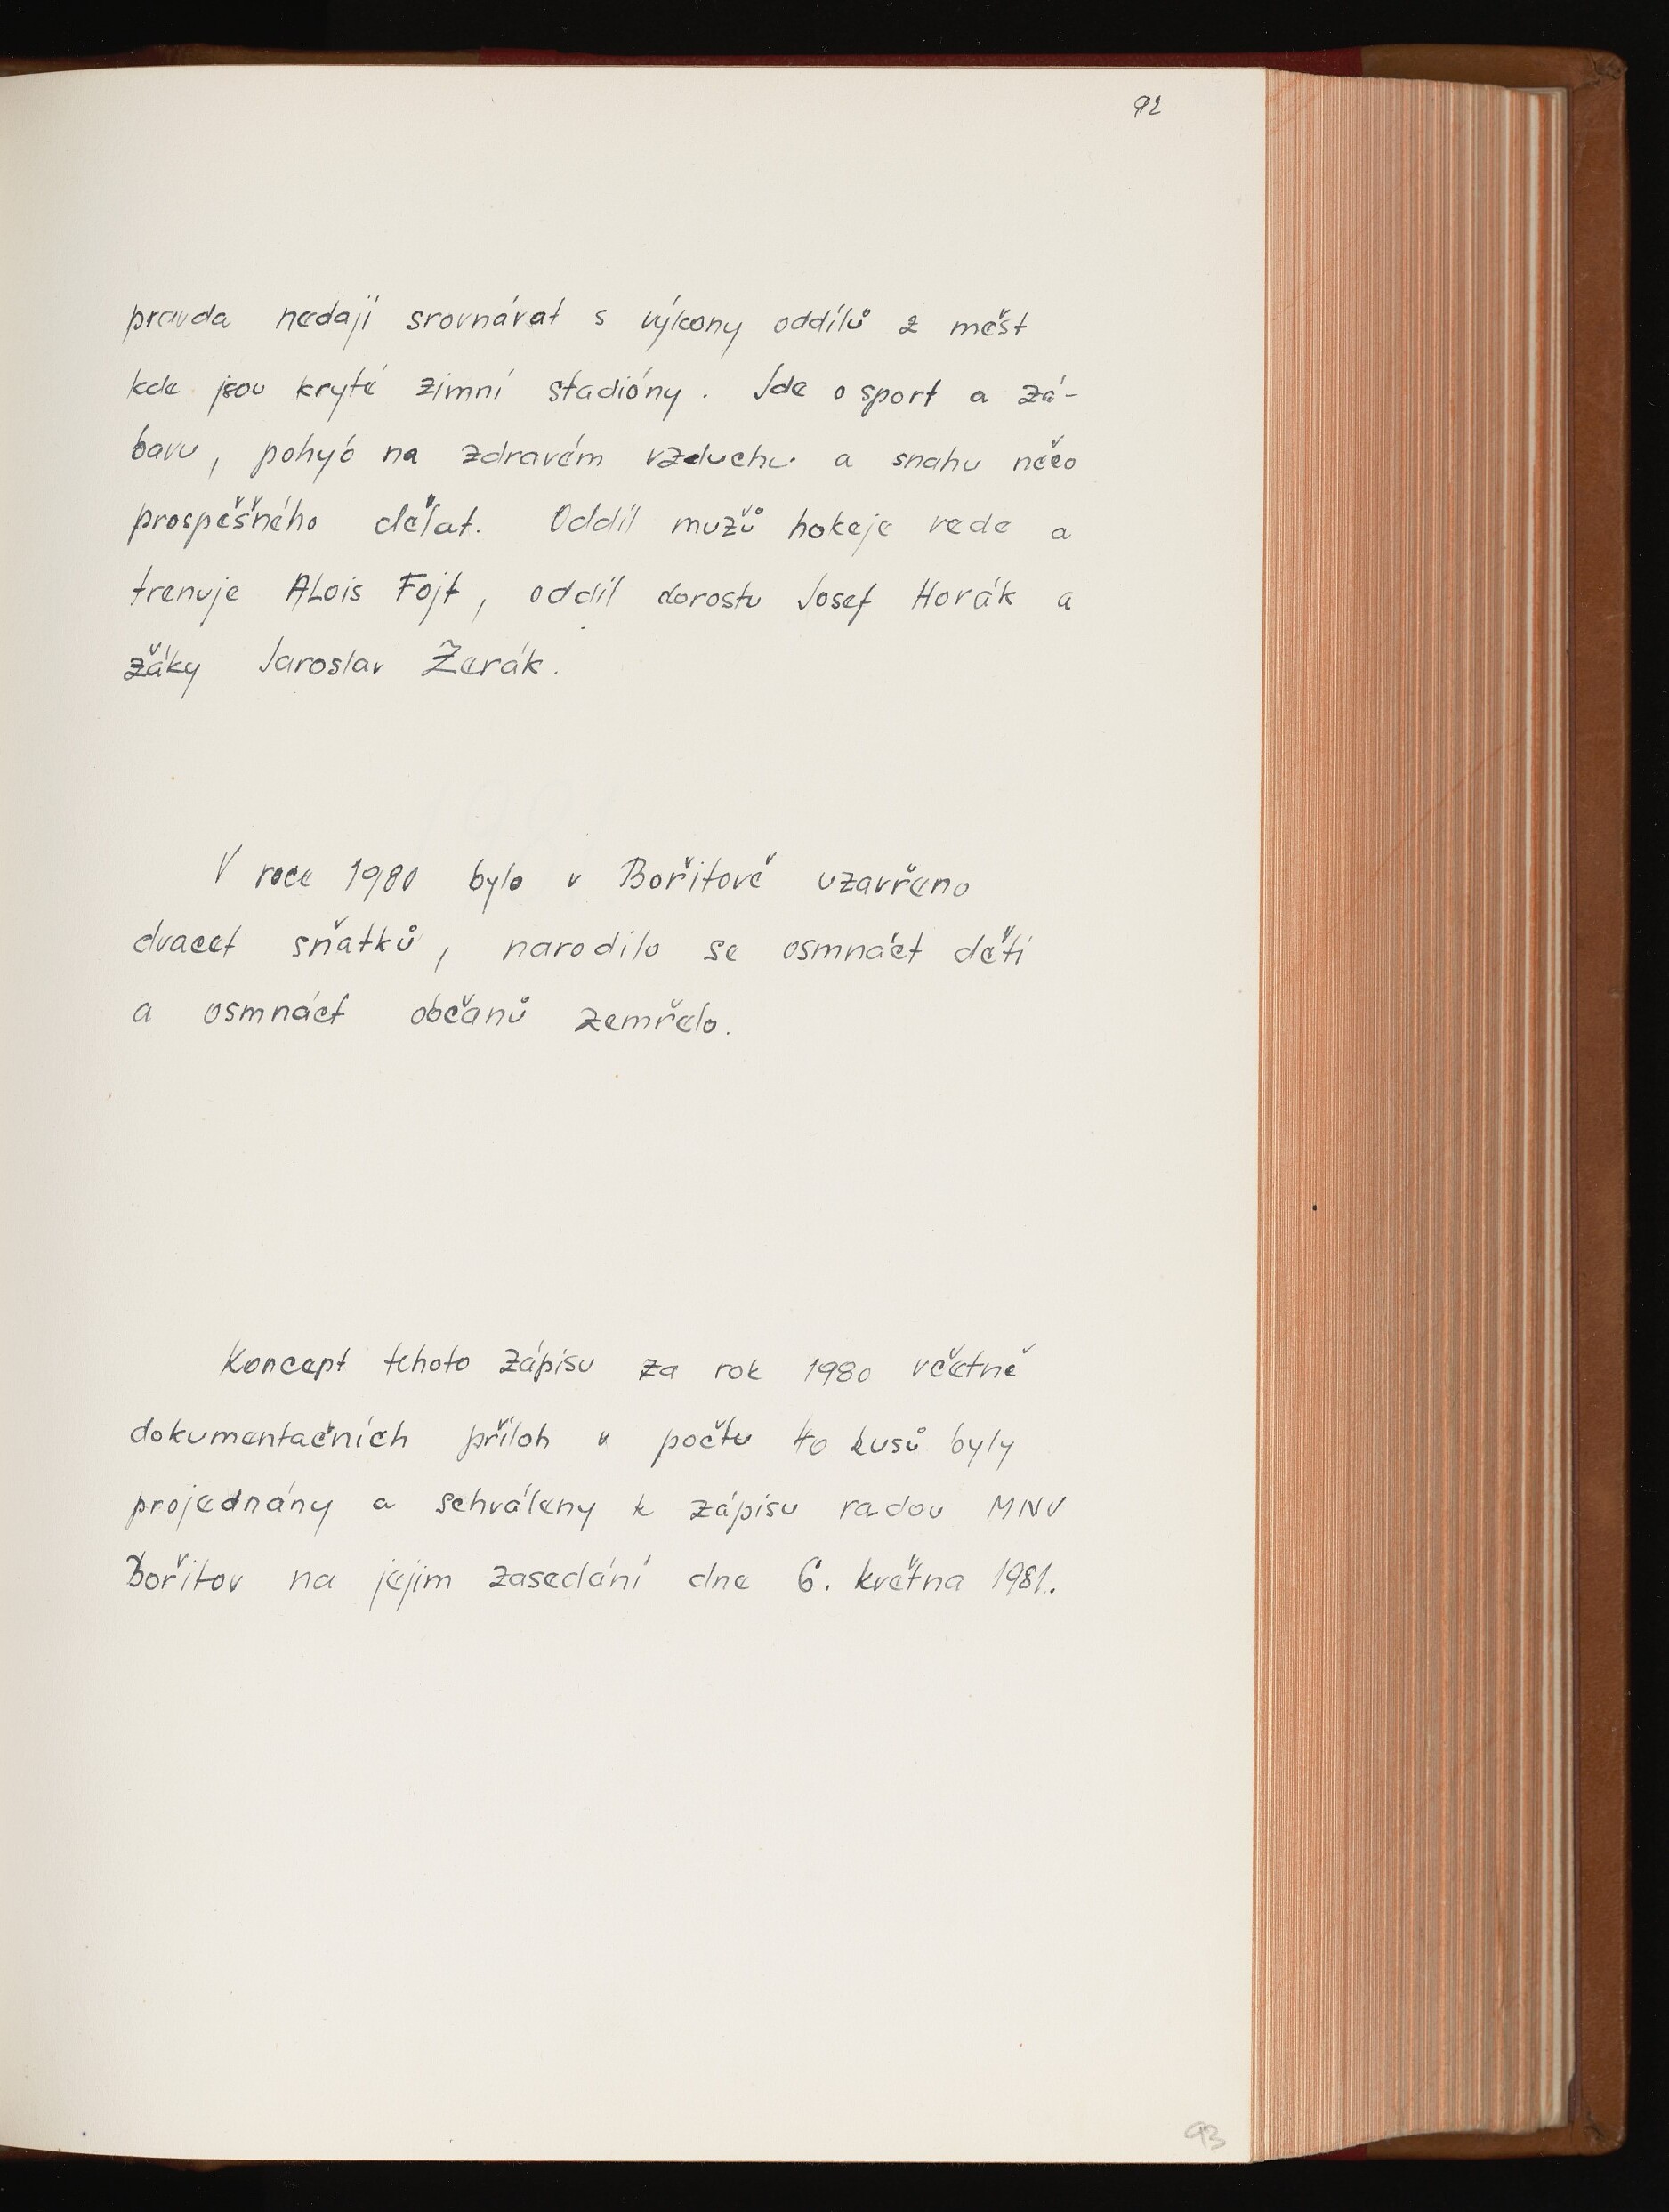 92
pravda nedají srovnávat s výkony oddílů z měst
kde jsou kryté zimní stadióny. Jde o sport a zá-
bavu, pohyb na zdravém vzduchu a snahu něco
prospěšného dělat. Oddíl mužů hokeje vede a
trenuje ALois Fojt, oddíl dorostu Josef Horák a
žáky Jaroslav Žerák.
V roce 1980 bylo v Bořitově uzavřeno
dvacet sňatků, narodilo se osmnáct dětí
a osmnáct občanů zemřelo.
Koncept tohoto zápisu za rok 1980 včetně
dokumentačních příloh v počtu 40 kusů byly
projednány a schváleny k zápisu radou MNV
Bořitov na jejím zasedání dne 6. května 1981.
93